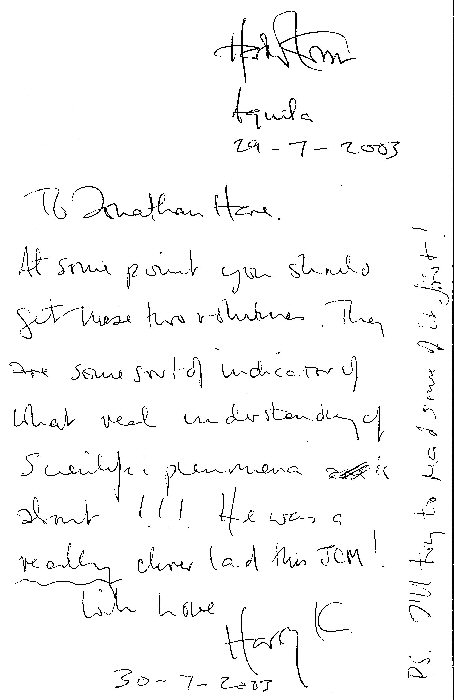 Aquila
29-7-2003
To Jonathan Hare.
At some point you should
get these two volumes. They
are some sort of indicator of
what real understanding of
Scientific phenomena is
about !!! He was a
really clever lad this JCM!
With love
Harry K
30-7-2003
PS. I'll try to read some of it first!